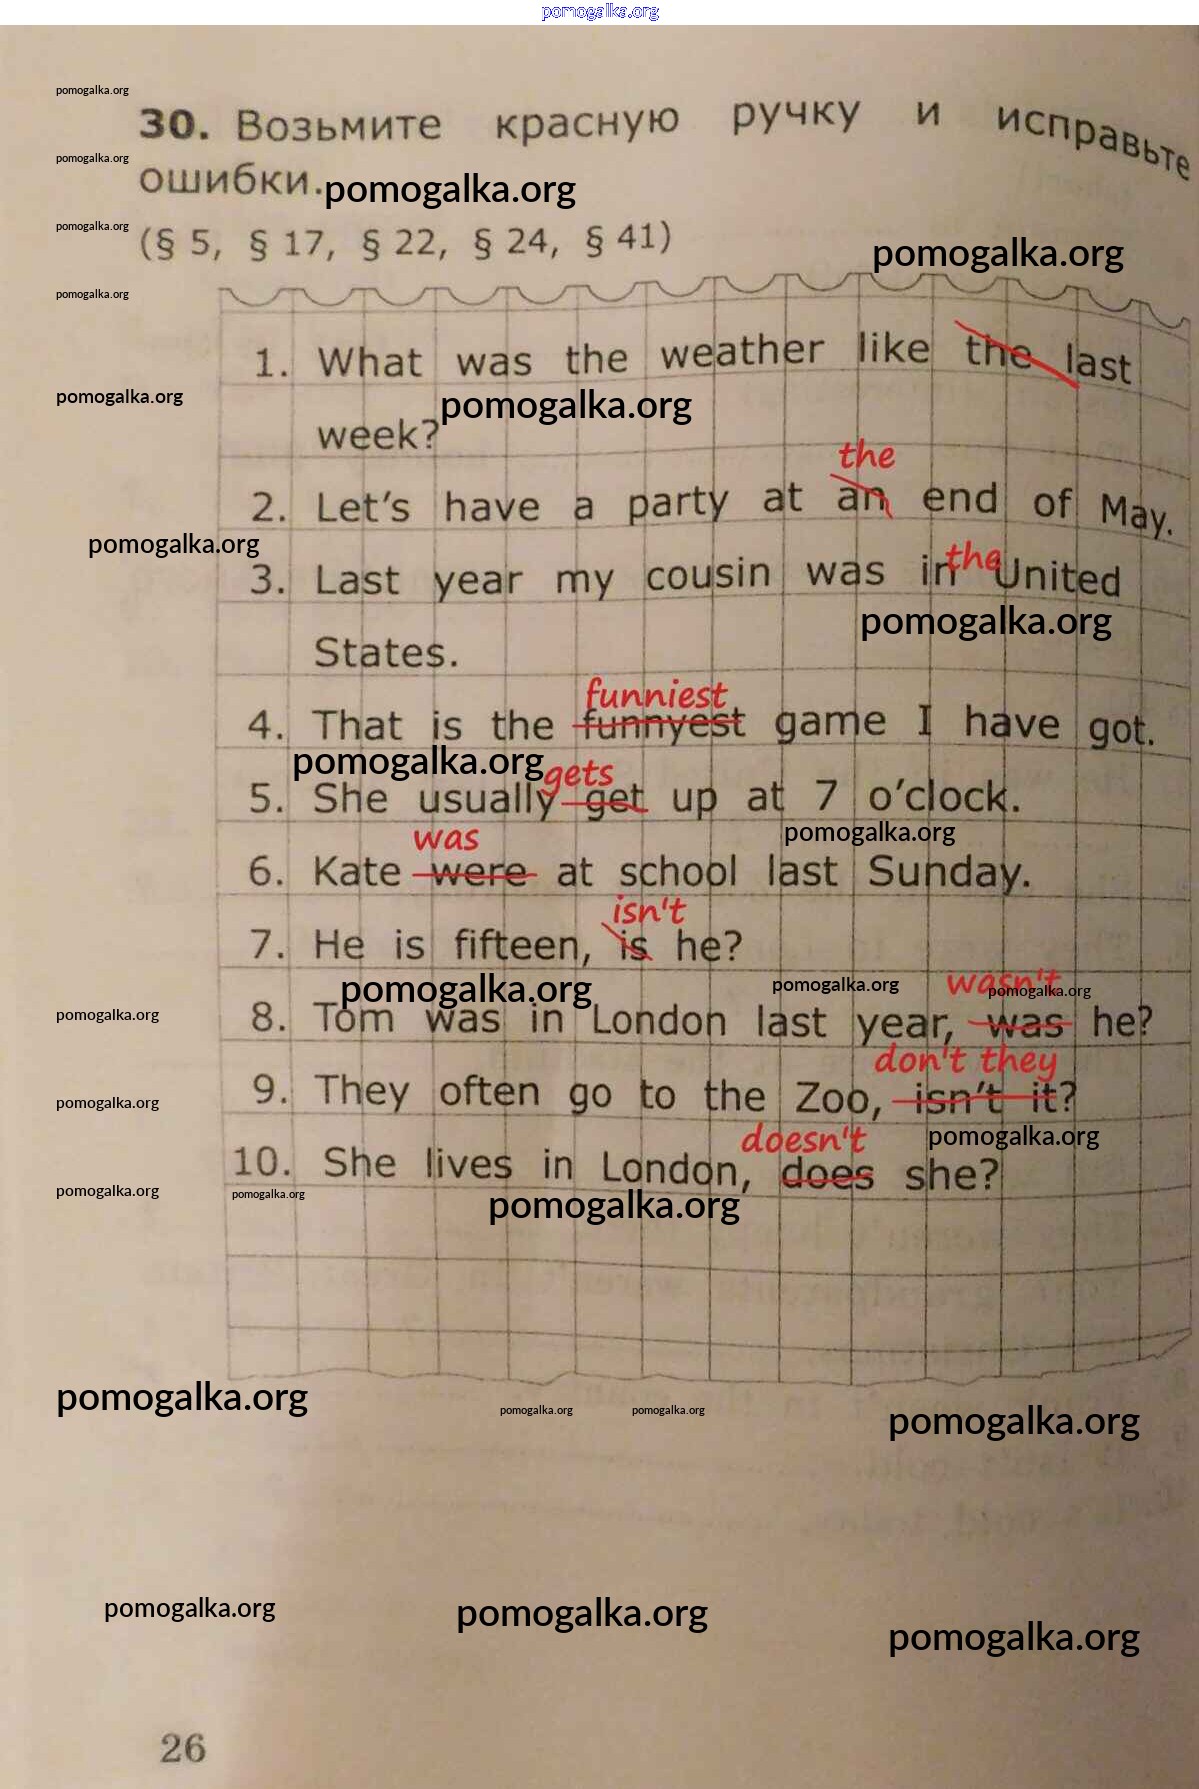 pomogalka.org
pomogalka.org
30. Возьмите красную ручку и исправьте
pomogalka.org
ошибки. pomogalka.org
pomogalka.org
(§ 5, § 17, § 22, § 24, § 41)
pomogalka.org
pomogalka.org
1. What was the weather like the last
pomogalka.org
pomogalka.org
week?
the
2. Let's have a party at an end of May.
pomogalka.org
the
3. Last year my cousin was in United
pomogalka.org
States.
funniest
4. That is the funnyest game I have got.
pomogalka.org
gets
5. She usually get up at 7 o'clock.
pomogalka.org
was
6. Kate were at school last Sunday.
isn't
7. He is fifteen, is he?
pomogalka.org
pomogalka.org
wasn't
pomogalka.org
pomogalka.org
8. Tom was in London last year, was he?
don't they
9. They often go to the Zoo, isn't it?
pomogalka.org
doesn't
pomogalka.org
10. She lives in London, does she?
pomogalka.org
pomogalka.org
pomogalka.org
pomogalka.org
pomogalka.org
pomogalka.org
pomogalka.org
pomogalka.org
pomogalka.org
pomogalka.org
26